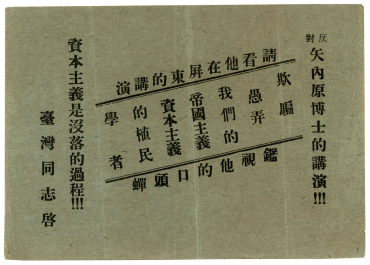 反對
矢內原博士的講演!!!
請看他在屏東的講演
欺騙
愚弄
我們的
帝國主義
資本主義
的植民
學者
鑑視他的口頭蟬
資本主義是沒落的過程!!!
臺灣同志啓